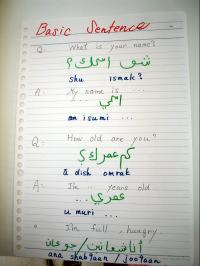 Basic Sentence
Q: What is your name?
شو اسمك؟
shu ismak?
A: My name is ...
اسمي ...
an isumi ...
Q: How old are you?
كم عمرك؟
a dish omrak
A: I'm .. years old
عمري ...
u muri ...
I'm full, hungry.
أنا شبعان / جوعان
ana shab3aan / joo3aan